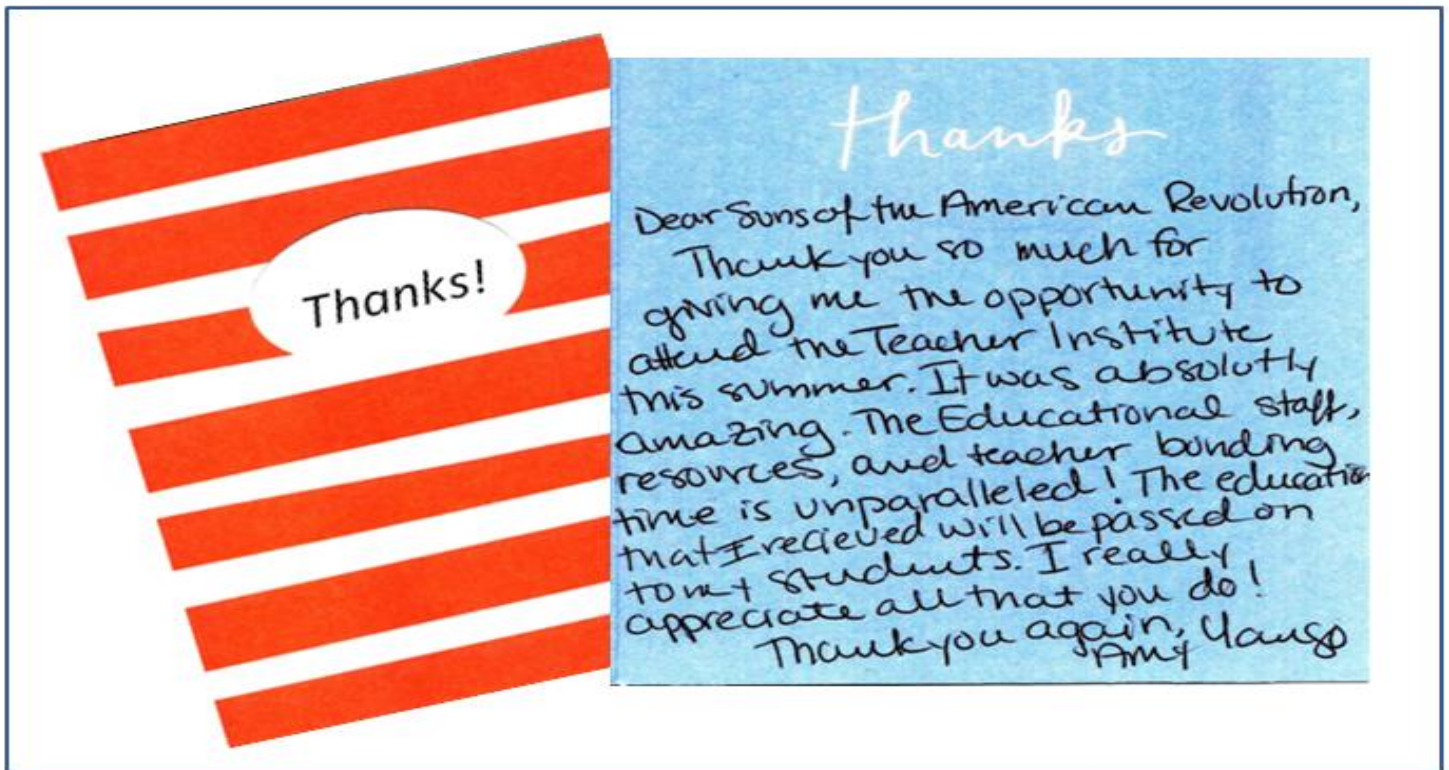 Thanks!
thanks
Dear Suns of the American Revolution,
Thank you so much for
giving me the opportunity to
attend the Teacher Institute
this summer. It was absolutly
amazing. The Educational staff,
resources, and teacher bonding
time is unparalleled! The education
that I recieved will be passed on
to my students. I really
appreciate all that you do!
Thank you again,
Amy